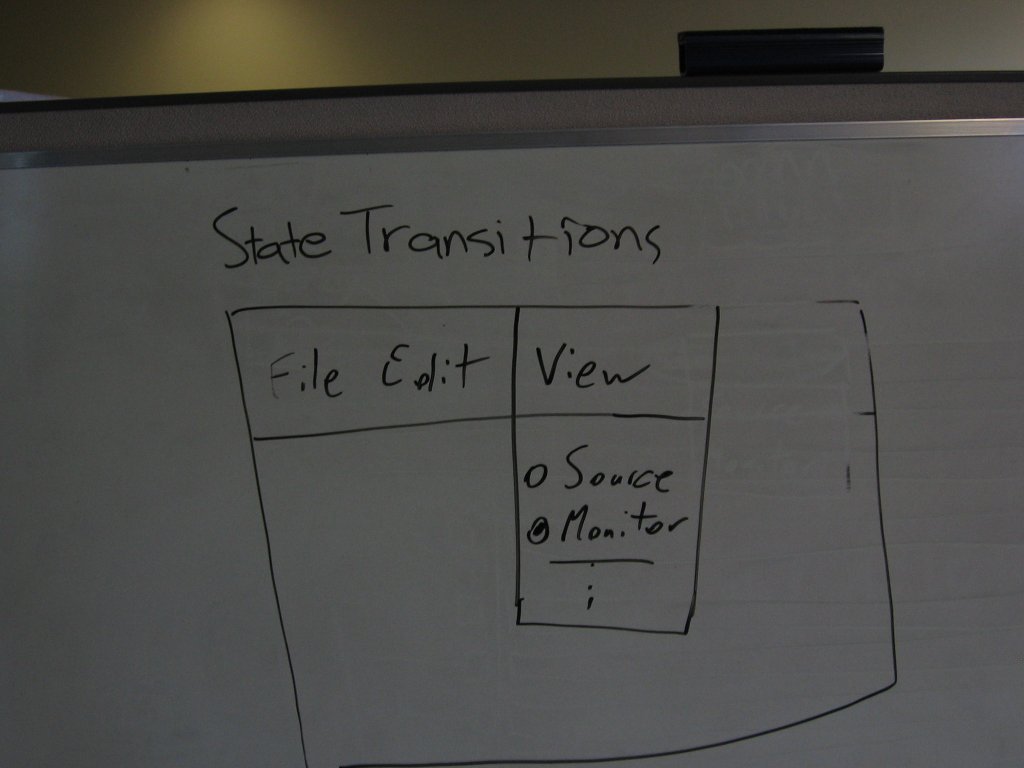 State Transitions
File Edit View
Source
Monitor